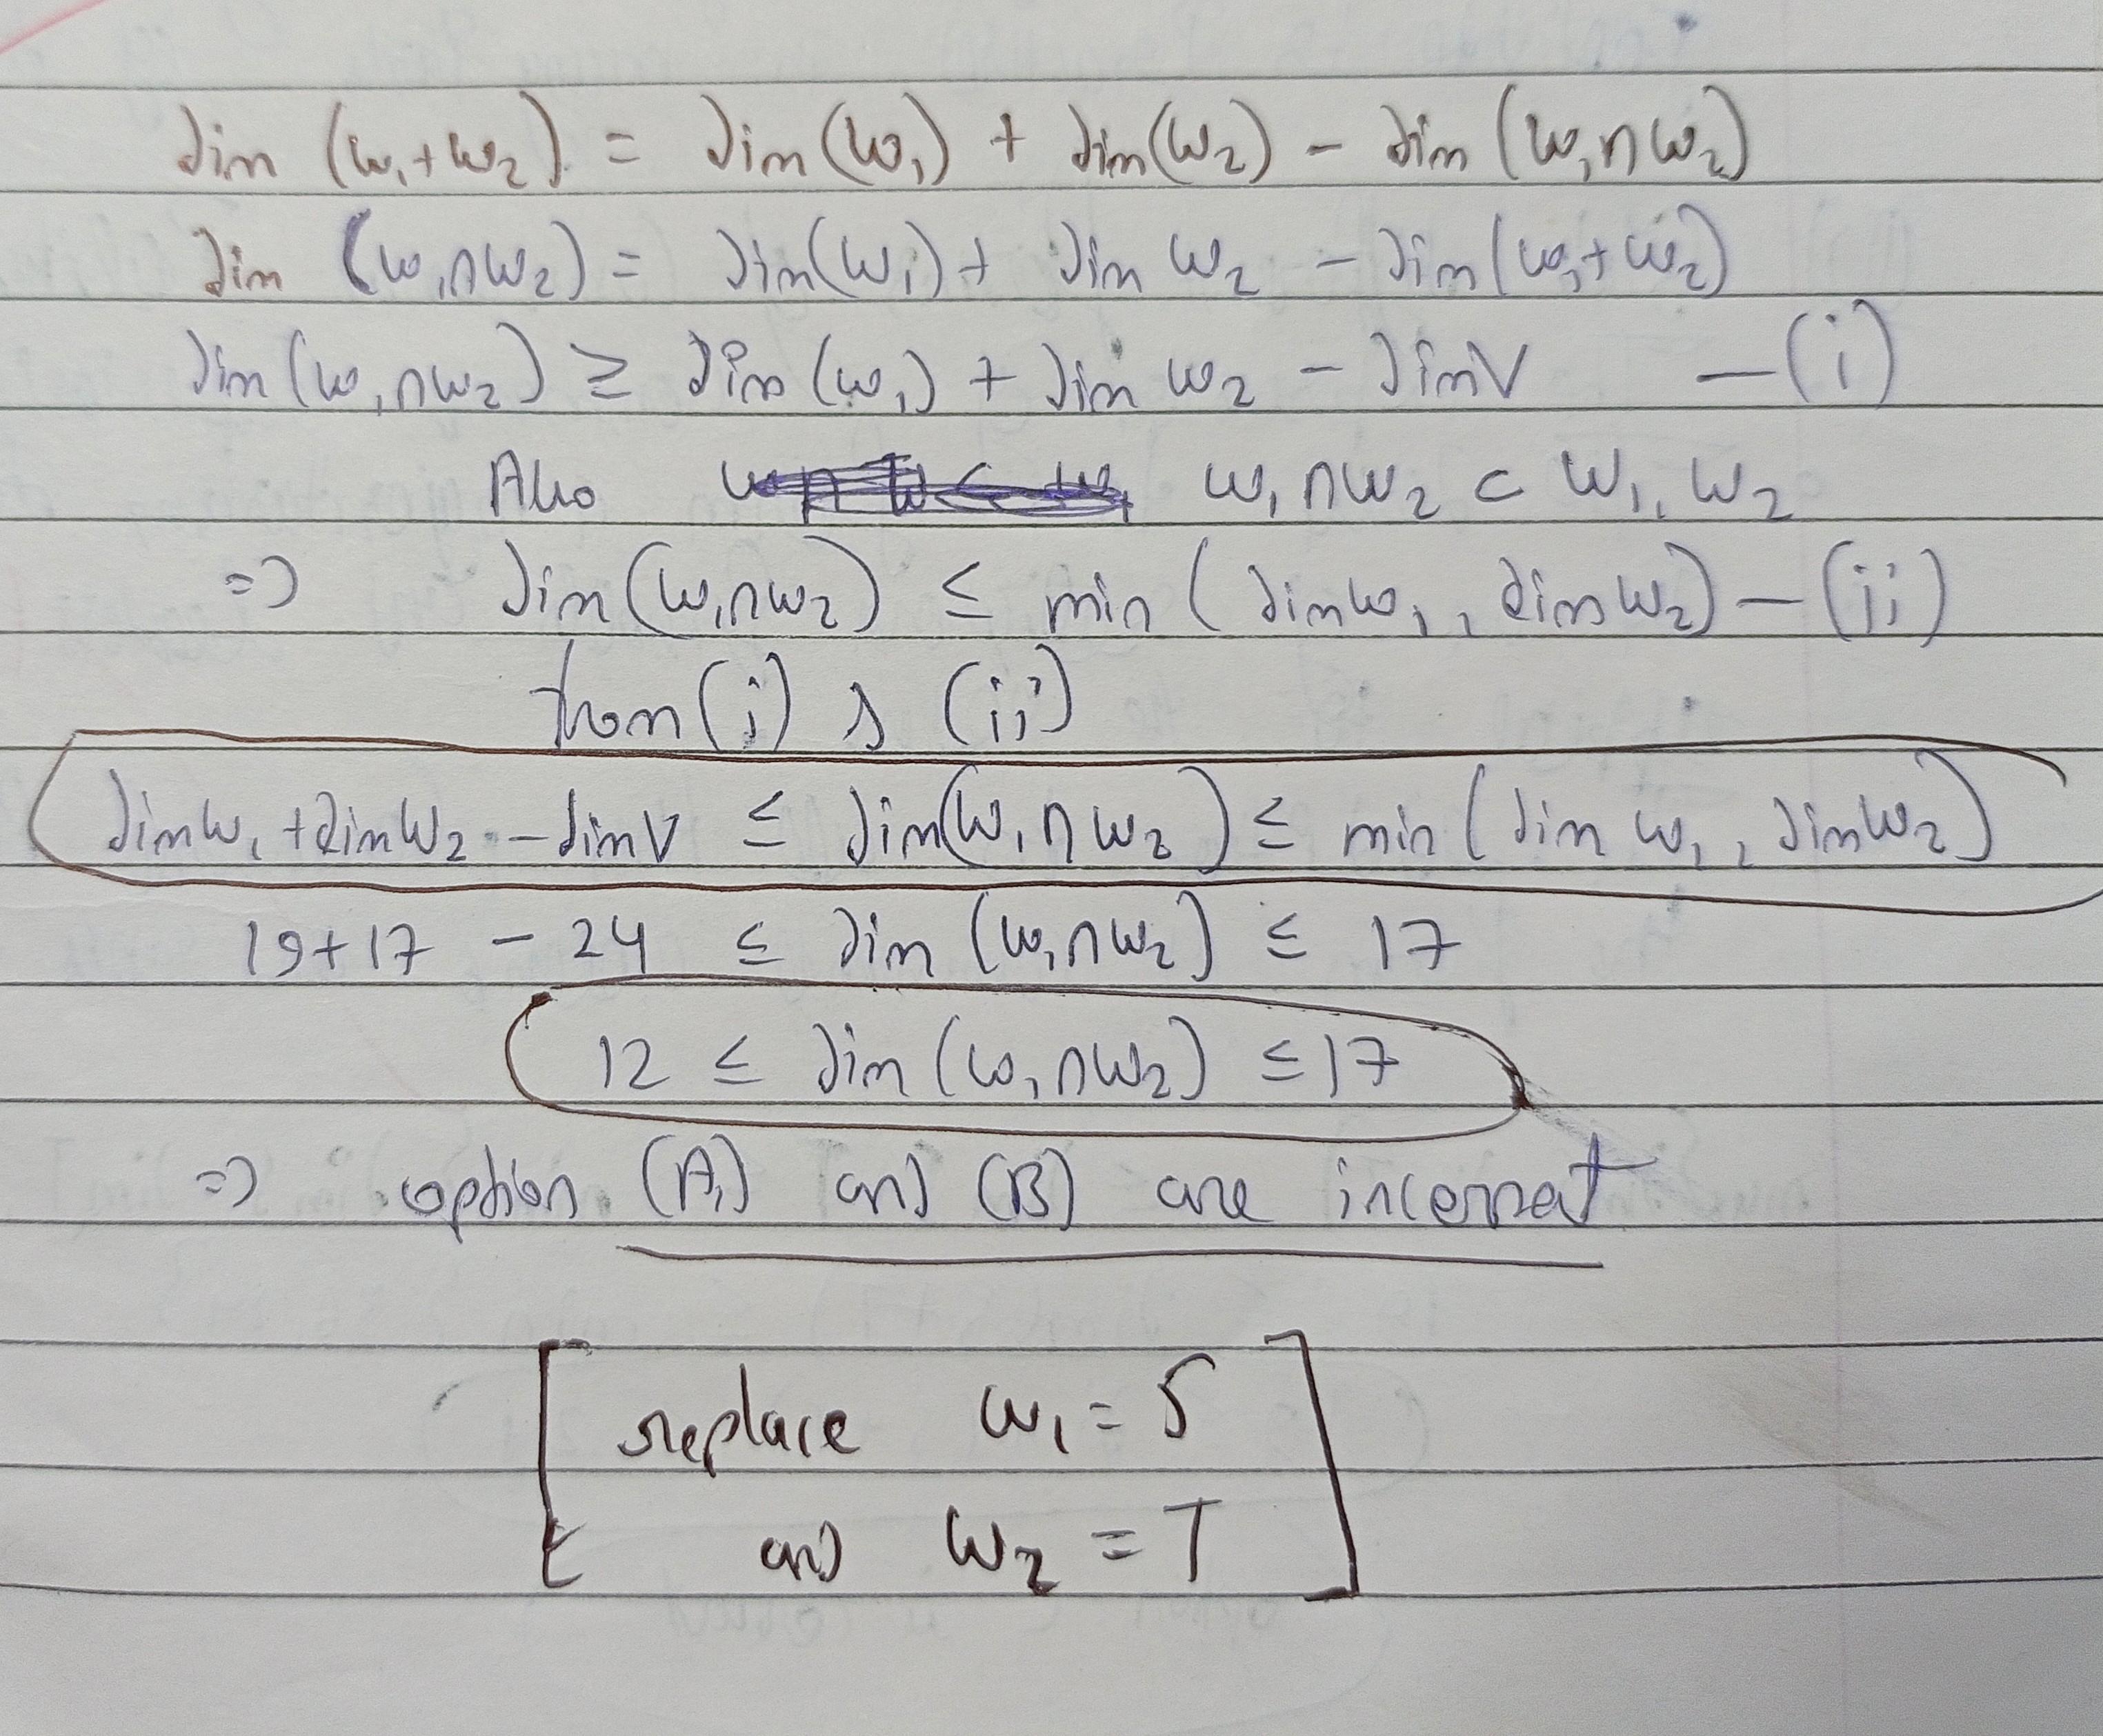 dim (w₁+w₂) = dim (w₁) + dim(w₂) - dim (w₁∩w₂)
dim (w₁∩w₂) = dim(w₁) + dim w₂ - dim(w₁+w₂)
dim (w₁∩w₂) ≥ dim (w₁) + dim w₂ - dimV — (i)
Also w₁∩w₂ ⊂ w₁, w₂
=> dim(w₁∩w₂) ≤ min (dim w₁, dim w₂) — (ii)
from (i) & (ii)
dim w₁ + dim w₂ - dim V ≤ dim(w₁∩w₂) ≤ min (dim w₁, dim w₂)
19+17 - 24 ≤ dim (w₁∩w₂) ≤ 17
12 ≤ dim (w₁∩w₂) ≤ 17
=> option (A) and (B) are incorrect
replace w₁ = S
and w₂ = T